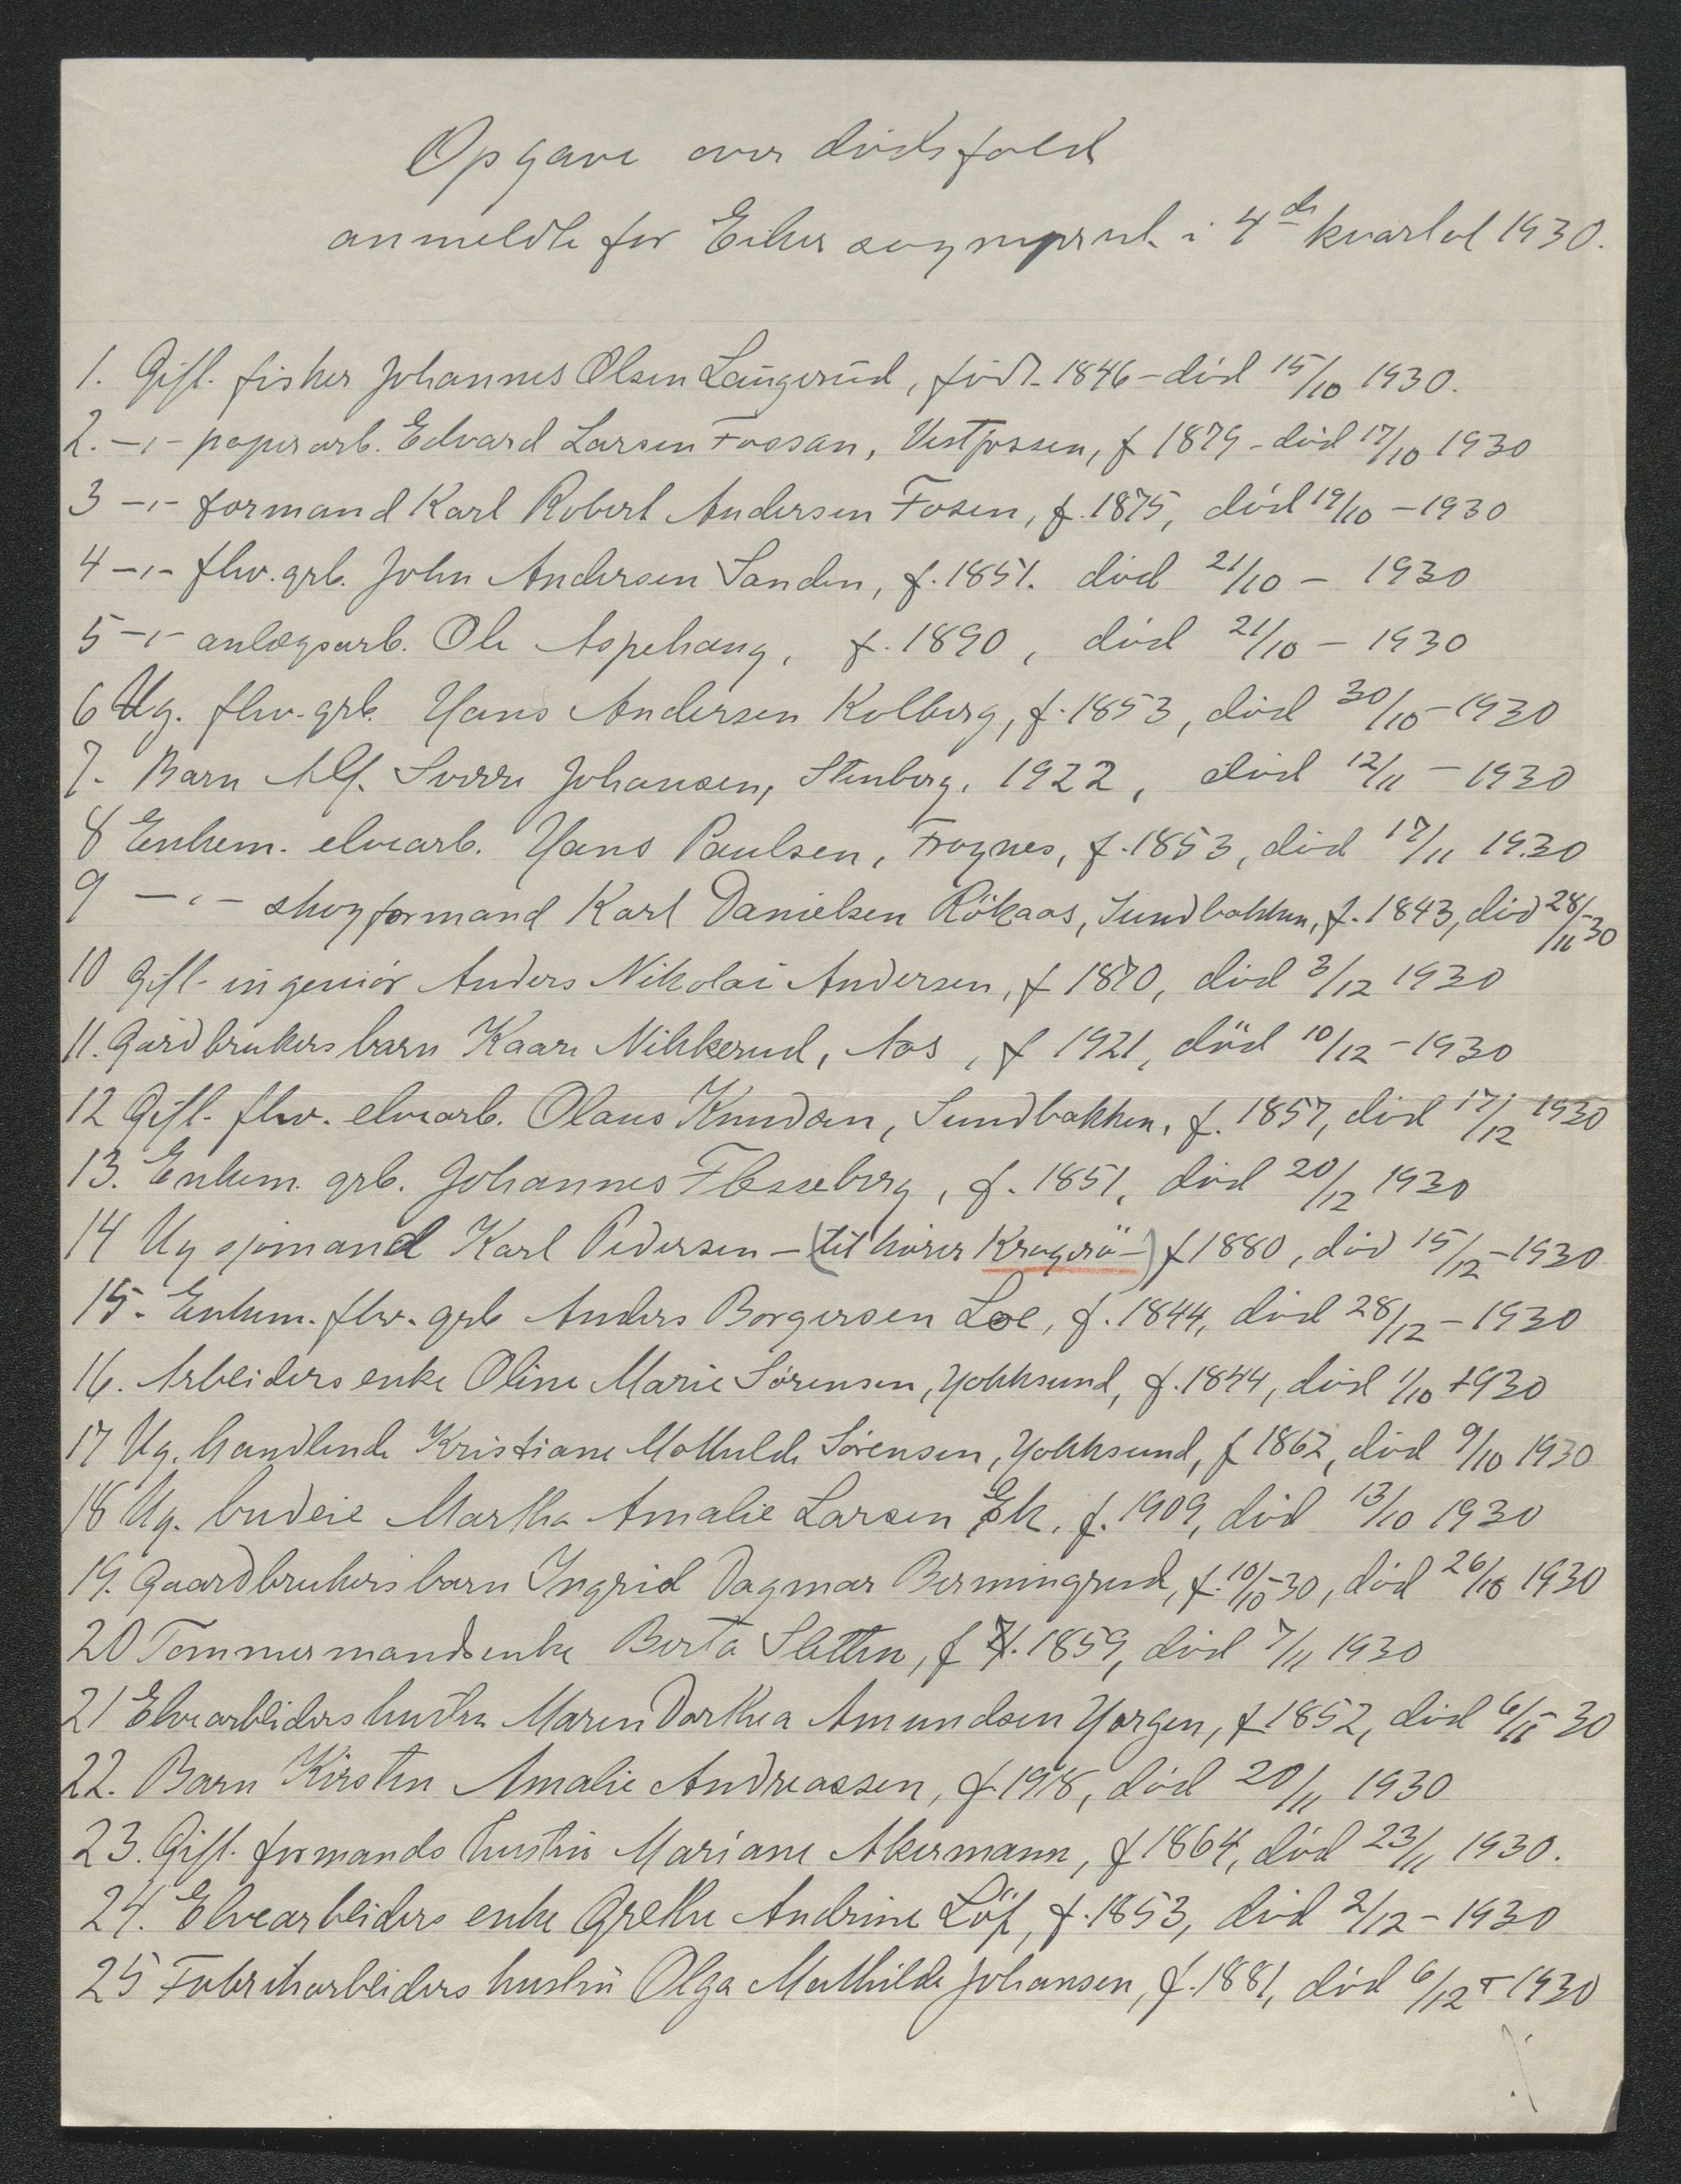 Opgave over dødsfald
anmeldte for Eiker sogneprest i 4de kvartal 1930.
1. Gift. fisker Johannes Olsen Langerud, født 1846 - død 15/10 1930.
2. -"- papirarb. Edvard Larsen Fossan, Vestfossen, f 1879 - død 17/10 1930
3 -"- formand Karl Robert Andersen Fosen, f. 1875, död 19/10 - 1930
4 -"- fhv. grb. John Andersen Sanden, f. 1851. død 21/10 - 1930
5 -"- anlægsarb. Ole Aspehaug, f. 1890, død 21/10 - 1930
6 Ug. fhv. grb. Hans Andersen Kolberg, f. 1853, død 30/10 - 1930
7. Barn Alf Sverre Johansen, Stenberg, 1922, død 12/11 - 1930
8 Enkem. elvearb. Hans Paulsen, Frognes, f. 1853, død 17/11 1930
9 -"- skogformand Karl Danielsen Rökaas, Sundbakken, f. 1843, død 28/11-30
10 Gift. ingeniør Anders Nikolai Andersen, f 1870, død 3/12 1930
11. Gårdbrukers barn Kaare Nikkerud, Aas, f 1921, död 10/12 - 1930
12 Gift. fhv. elvearb. Olaus Knudsen, Sundbakken, f. 1857, død 17/12 1930
13. Enkem. grb. Johannes Flesseberg, f. 1851, død 20/12 1930
14 Ug sjømand Karl Pedersen - (tilhører Kragerö -) f 1880, død 15/12 - 1930
15. Enkem. fhv. grb Anders Borgersen Loe, f. 1844, død 28/12 - 1930
16. Arbeiders enke Oline Marie Sørensen, Hokksund, f. 1844, død 1/10 1930
17 Ug. handlende Kristiane Mathilde Sørensen, Hokksund, f 1862, død 9/10 1930
18 Ug. budeie Martha Amalie Larsen Ek, f. 1909, død 13/10 1930
19. Gaardbrukers barn Ingrid Dagmar Bermingrud, f. 10/10-30, død 26/10 1930
20 Tømmermandsenke Berta Sletten, f. 1859, død 7/11 1930
21 Elvearbeiders hustru Maren Dorthea Amundsen Horgen, f 1852, død 6/11-30
22. Barn Kirsten Amalie Andreassen, f. 1918, død 20/11 1930
23. Gift. formands hustru Mariane Akermann, f 1864, død 23/11 1930.
24. Elvearbeiders enke Grethe Andrine Löf, f. 1853, død 2/12 - 1930
25 Fabrikarbeiders hustru Olga Mathilde Johansen, f. 1881, død 6/12 - 1930